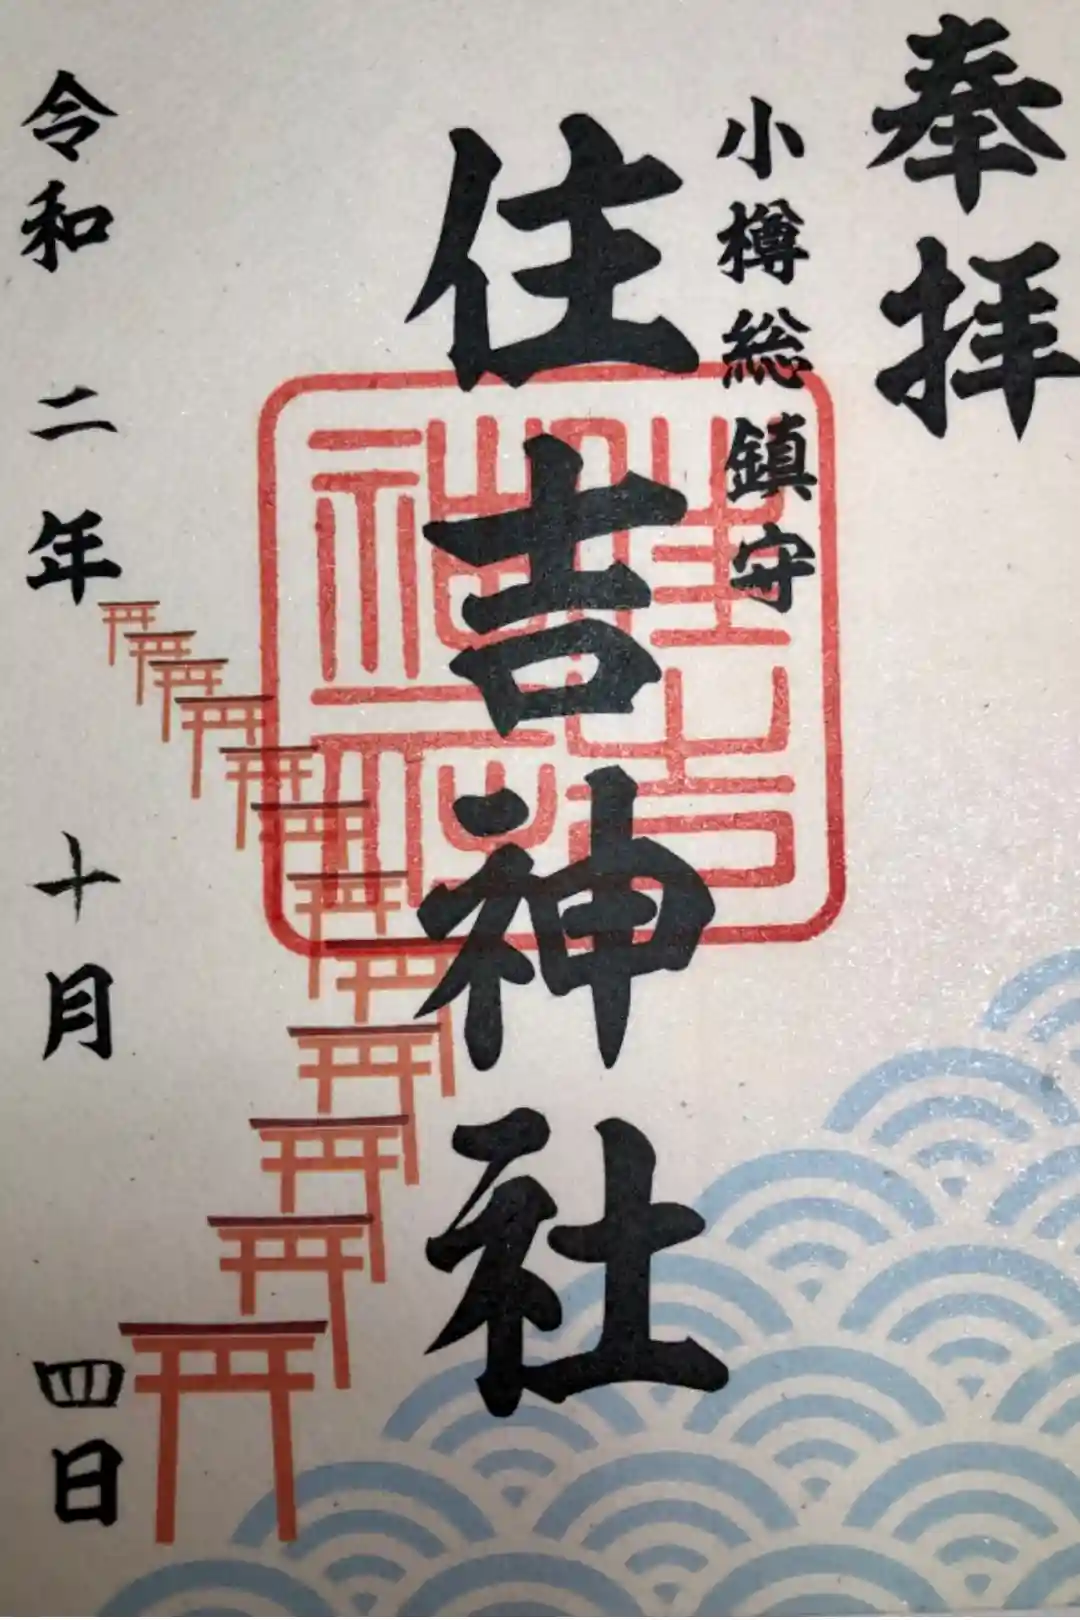 奉拝
小樽総鎮守
住吉神社
住吉神社
令和二年十月四日